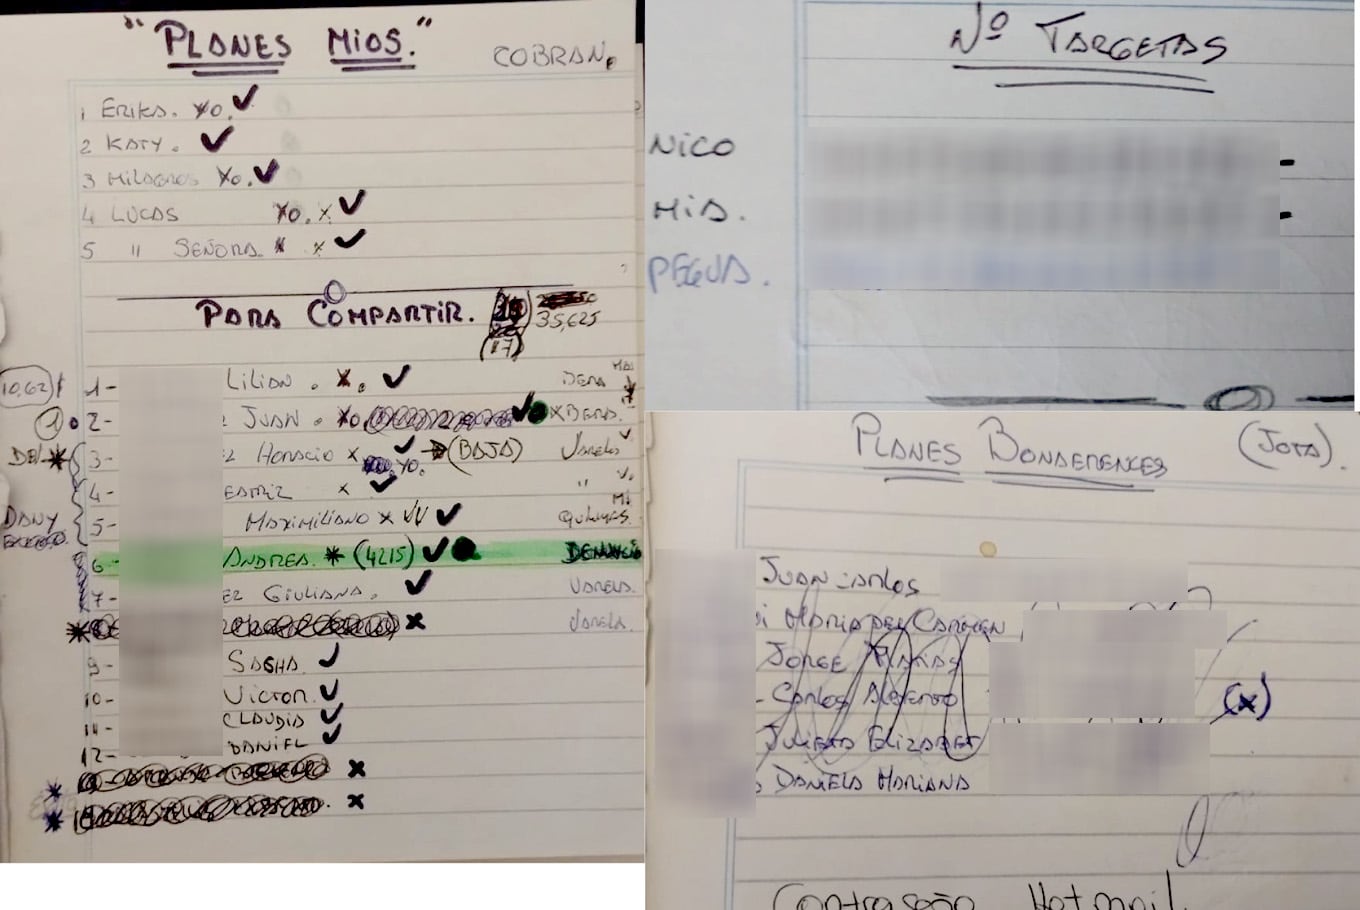 "PLANES MIOS."
COBRAN.
1 ERIKA. YO. ✓
2 KATY. ✓
3 MILAGROS YO. ✓
4 LUCAS YO. X ✓
5 " SEÑORA. X ✓
PARA COMPARTIR. 35,625
(17)
10,62
1- LILIAN. X. ✓
1 2- JUAN. YO ✓ X BERA.
3- HORACIO X ✓ → (BAJA) VARELA
YO.
4- X ✓ "
DANY 5- MAXIMILIANO X ✓✓ ✓ QUILMES.
6- ANDREA. * (4215) ✓ DENUNCIO
7- GIULIANA. ✓ VARELA.
X VARELA.
9- SASHA ✓
10- VICTOR. ✓
11- CLAUDIA ✓
12- DANIEL ✓
X
X
Nº TARGETAS
NICO
MIA.
PEGUA.
PLANES BONAERENCES (JOTA).
JUAN CARLOS
MARIA DEL CARMEN
JORGE MATIAS
CARLOS ALBERTO (X)
JULIETA ELIZABET
DANIELA MARIANA
Contraseña Hotmail